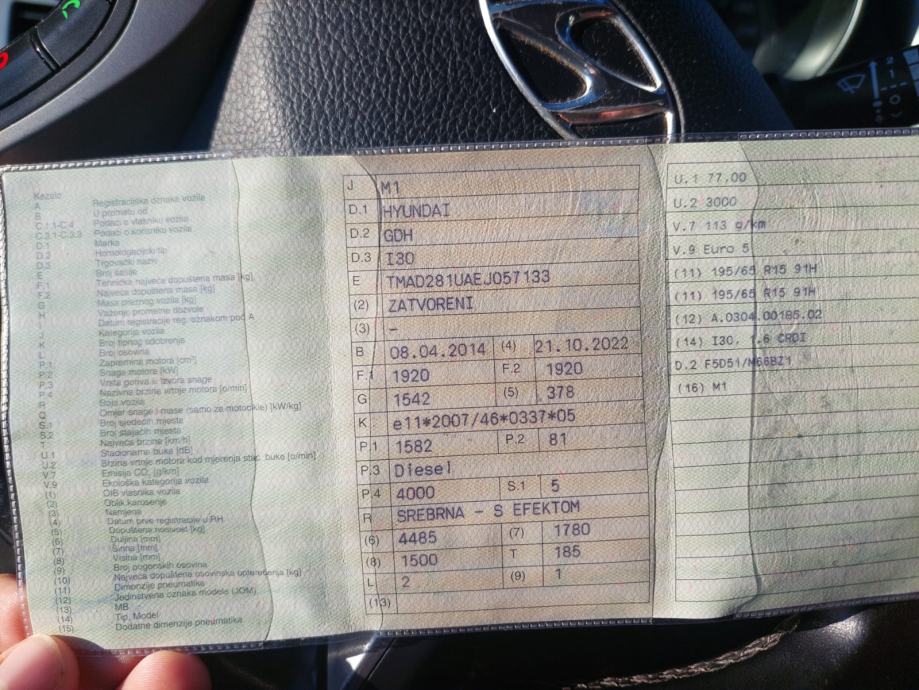 Kazalo
A Registracijska oznaka vozila
B U prometu od
C.1.1-C.4 Podaci o vlasniku vozila
C.3.1-C.3.3 Podaci o korisniku vozila
D.1 Marka
D.2 Homologacijski tip
D.3 Trgovački naziv
E Broj šasije
F.1 Tehnička najveća dopuštena masa [kg]
F.2 Najveća dopuštena masa [kg]
G Masa praznog vozila [kg]
H Važenje prometne dozvole
I Datum registracije reg. oznakom pod A
J Kategorija vozila
K Broj tipnog odobrenja
L Broj osovina
P.1 Zapremina motora [cm³]
P.2 Snaga motora [kW]
P.3 Vrsta goriva ili izvora snage
P.4 Nazivna brzina vrtnje motora [o/min]
R Boja vozila
Q Omjer snage i mase (samo za motocikle) [kW/kg]
S.1 Broj sjedećih mjesta
S.2 Broj stajaćih mjesta
T Najveća brzina [km/h]
U.1 Stacionarna buka [dB]
U.2 Brzina vrtnje motora kod mjerenja stac. buke [o/min]
V.7 Emisija CO₂ [g/km]
V.9 Ekološka kategorija vozila
(1) OIB vlasnika vozila
(2) Oblik karoserije
(3) Namjena
(4) Datum prve registracije u RH
(5) Dopuštena nosivost [kg]
(6) Duljina [mm]
(7) Širina [mm]
(8) Visina [mm]
(9) Broj pogonskih osovina
(10) Najveća dopuštena osovinska opterećenja [kg]
(11) Dimenzije pneumatika
(12) Jedinstvena oznaka modela (JOM)
(13) MB
(14) Tip, Model
(15) Dodatne dimenzije pneumatika
J M1
D.1 HYUNDAI
D.2 GDH
D.3 I30
E TMAD281UAEJ057133
(2) ZATVORENI
(3) –
B 08.04.2014 (4) 21.10.2022
F.1 1920 F.2 1920
G 1542 (5) 378
K e11*2007/46*0337*05
P.1 1582 P.2 81
P.3 Diesel
P.4 4000 S.1 5
R SREBRNA - S EFEKTOM
(6) 4485 (7) 1780
(8) 1500 T 185
L 2 (9) 1
(13)
U.1 77,00
U.2 3000
V.7 113 g/km
V.9 Euro 5
(11) 195/65 R15 91H
(11) 195/65 R15 91H
(12) A.0304.00185.02
(14) I30, 1.6 CRDI
D.2 F5D51/M66BZ1
(16) M1
2
1